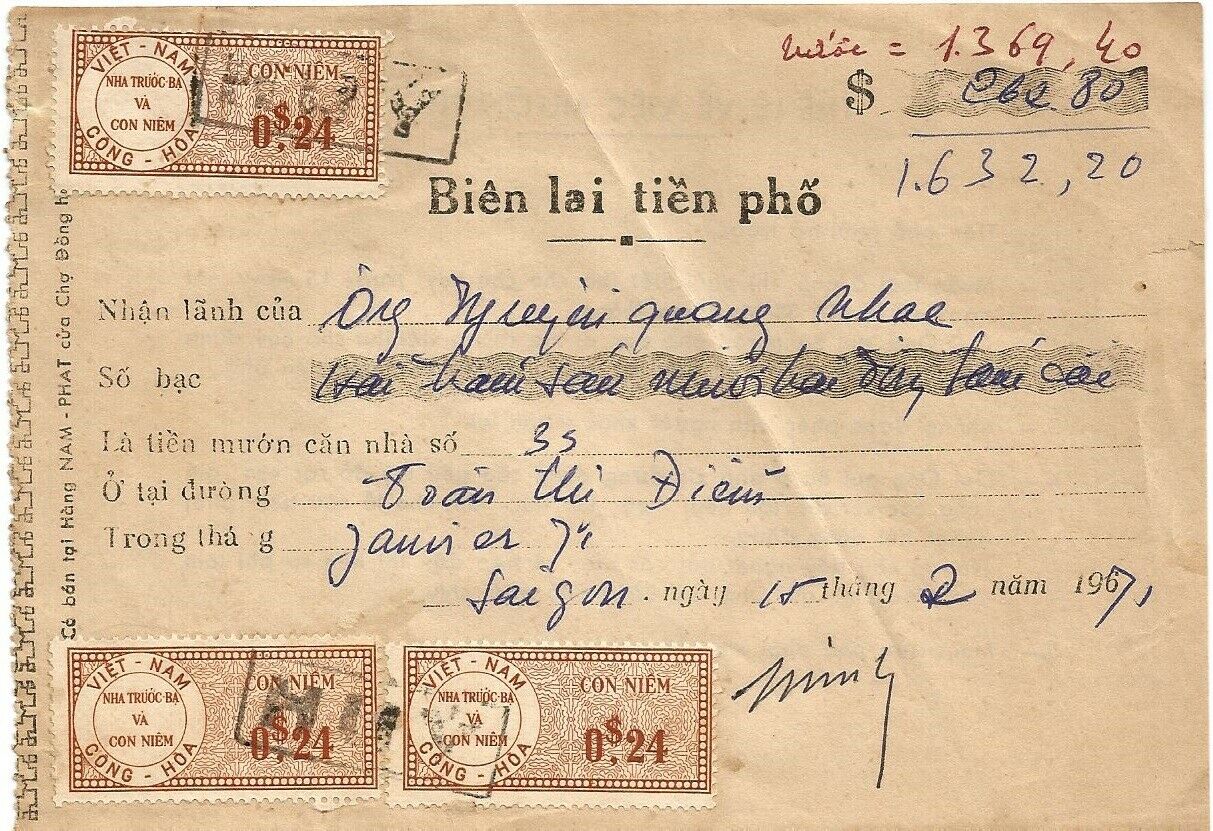 VIỆT - NAM
CỘNG - HÒA
NHA TRƯỚC-BẠ
VÀ
CON NIÊM
CON-NIÊM
0$,24
nước = 1.369,40
$ 262 80
1.632,20
Biên lai tiền phố
Nhận lãnh của Ông Nguyễn quang Nhạc
Số bạc Hai trăm sáu mươi hai đồng tám cắc
Là tiền mướn căn nhà số 35
Ở tại đường Đoàn thị Điểm
Trong tháng Janvier 71
Saigon. ngày 15 tháng 2 năm 1967 71
Có bán tại Hàng NAM - PHAT cửa Chợ Đông h
VIỆT - NAM
CỘNG - HÒA
NHA TRƯỚC-BẠ
VÀ
CON NIÊM
CON NIÊM
0$,24
VIỆT - NAM
CỘNG - HÒA
NHA TRƯỚC-BẠ
VÀ
CON NIÊM
CON NIÊM
0$,24